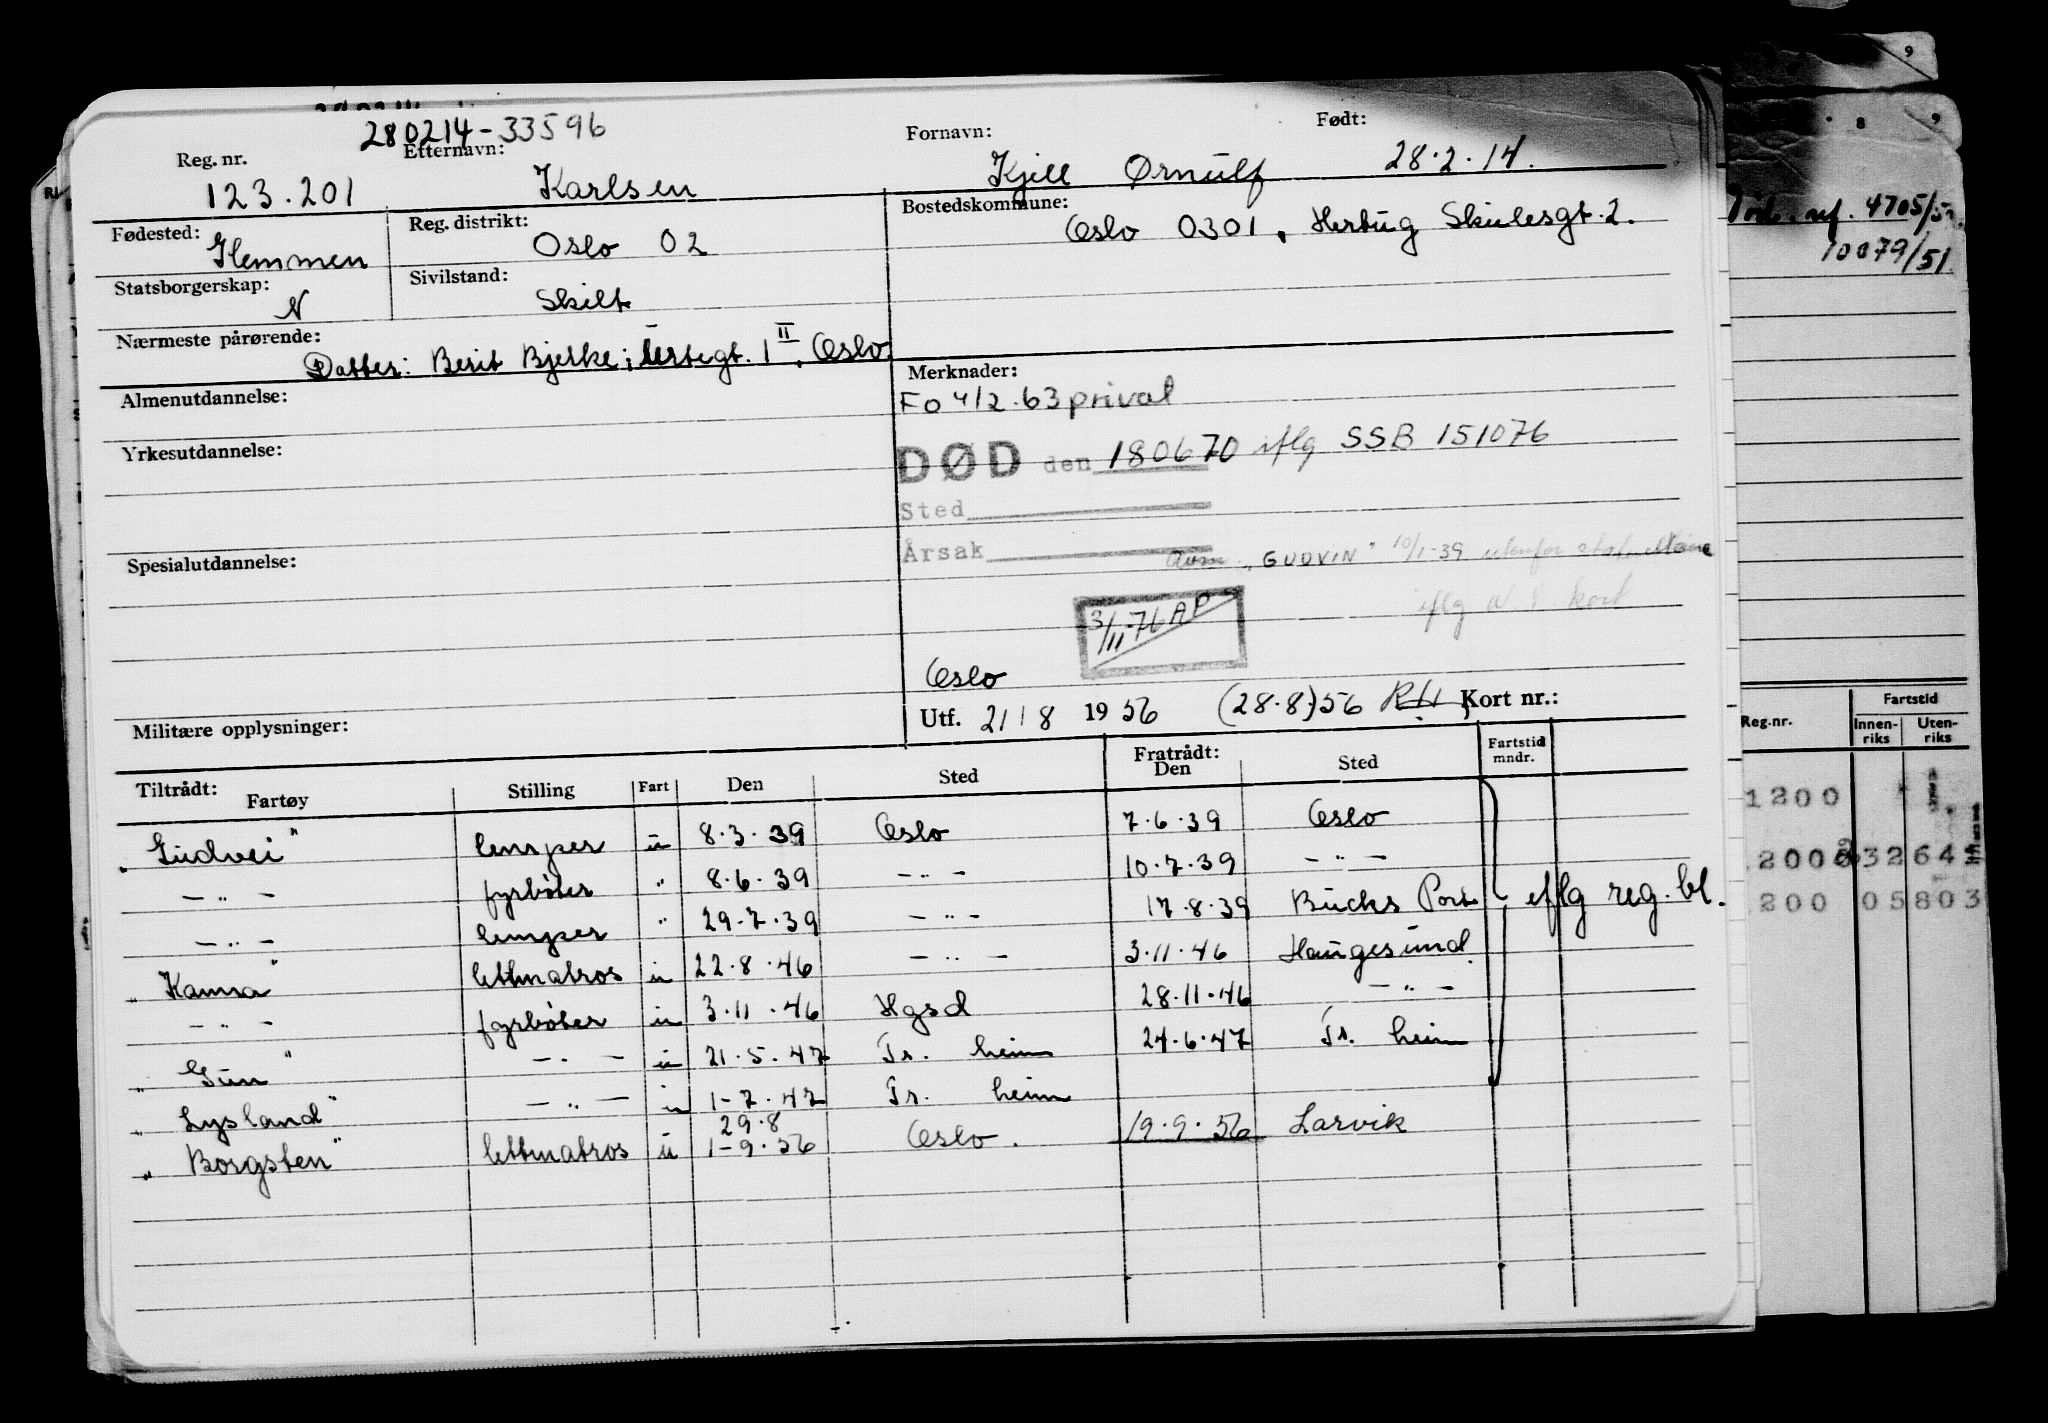 280214-33596
Reg. nr. Etternavn: Fornavn: Født:
123.201 Karlsen Kjell Ørnulf 28.2.14.
Fødested: Glemmen Reg. distrikt: Oslo 02 Bostedskommune: Oslo 0301, Hertug Skulesgt. 2.
Statsborgerskap: N Sivilstand: Skilt
Nærmeste pårørende:
Datter: Berit Bjerke; gt. 1 II, Oslo
Almenutdannelse:
Yrkesutdannelse:
Spesialutdannelse:
Militære opplysninger:
Merknader:
Fo 4/2-63 privat
DØD den 180670 iflg SSB 151076
Sted
Årsak
"GUDVIN" 10/1-39 utenfor Maine
iflg kort
3/11-76 AP
Oslo
Utf. 21/8 1956 (28.8)56 Kort nr.:
Tiltrådt: Fratrådt: Fartstid mndr.
Fartøy Stilling Fart Den Sted Den Sted
"Gudvei" lemper u 8.3.39 Oslo 7.6.39 Oslo
— " — fyrbøter " 8.6.39 — " — 10.7.39 — " —
— " — lemper " 29.7.39 — " — 17.8.39 Bucks Port iflg reg. bl.
"Kamsa" lettmatros u 22.8.46 — " — 3.11.46 Haugesund
— " — fyrbøter u 3.11.46 Hgsd 28.11.46 — " —
"Gun" — " — u 21.5.47 Tr. heim 24.6.47 Tr. heim
"Lysland" — " — u 1-7.47 Tr. heim
29.8
"Borgsten" lettmatros u 1-9.56 Oslo. 19.9.56 Larvik
9
8 9
ref. 4705/51
10079/51
Reg.nr. Fartstid
Innen-riks Uten-riks
1200
200 32 64
200 05803